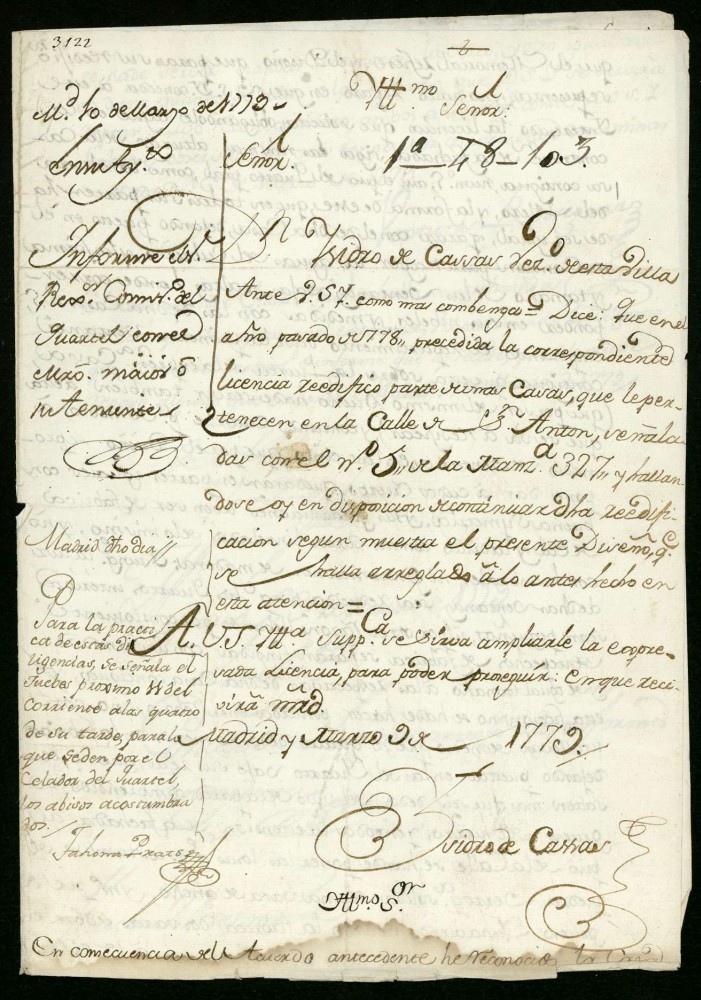 3122
Yll.mo Señor.
1ª-48-103.
M.d 10 de Marzo de 1779
En su Ay.to
Informe el S.
Rex.or Comis.o del
Quartel con el
Mro. maior ô
su teniente
Madrid dho dia
Para la practi
ca de estas di
ligencias, se señala el
Jueves proximo 11 del
Corriente a las quatro
de su tarde, para lo
que se den por el
Celador del Quartel,
los abisos acostumbra
dos.
Señor.
Dn Ysidro de Cassas vez.o de esta Villa
Ante V.S.Y. como mas combenga = Dice: que en el
año pasado de 1778,, precedida la correspondiente
licencia reedifico parte de unas Casas, que le per-
tenecen en la Calle de Sn Anton, señala
das con el n.o 5,, de la Manz.a 327,, y hallan
dose oy en disposicion de continuar dha reedifi-
cacion segun muestra el presente Diseño, q.e
se halla arreglado â lo antes hecho en
esta atencion =
A V.S. Yll.ma Supp.ca se sirva ampliarle la expre-
sada Licencia, para poder proseguir: en que reci-
virâ mrd.
Madrid y Marzo 9 de 1779.
Ysidro de Cassas
Yllmo. S.or
En consecuencia del Acuerdo antecedente he reconocido la Casa